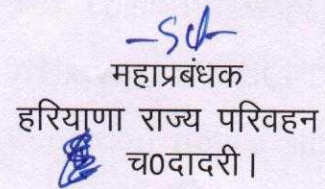 -Sd-
महाप्रबंधक
हरियाणा राज्य परिवहन
च0दादरी।